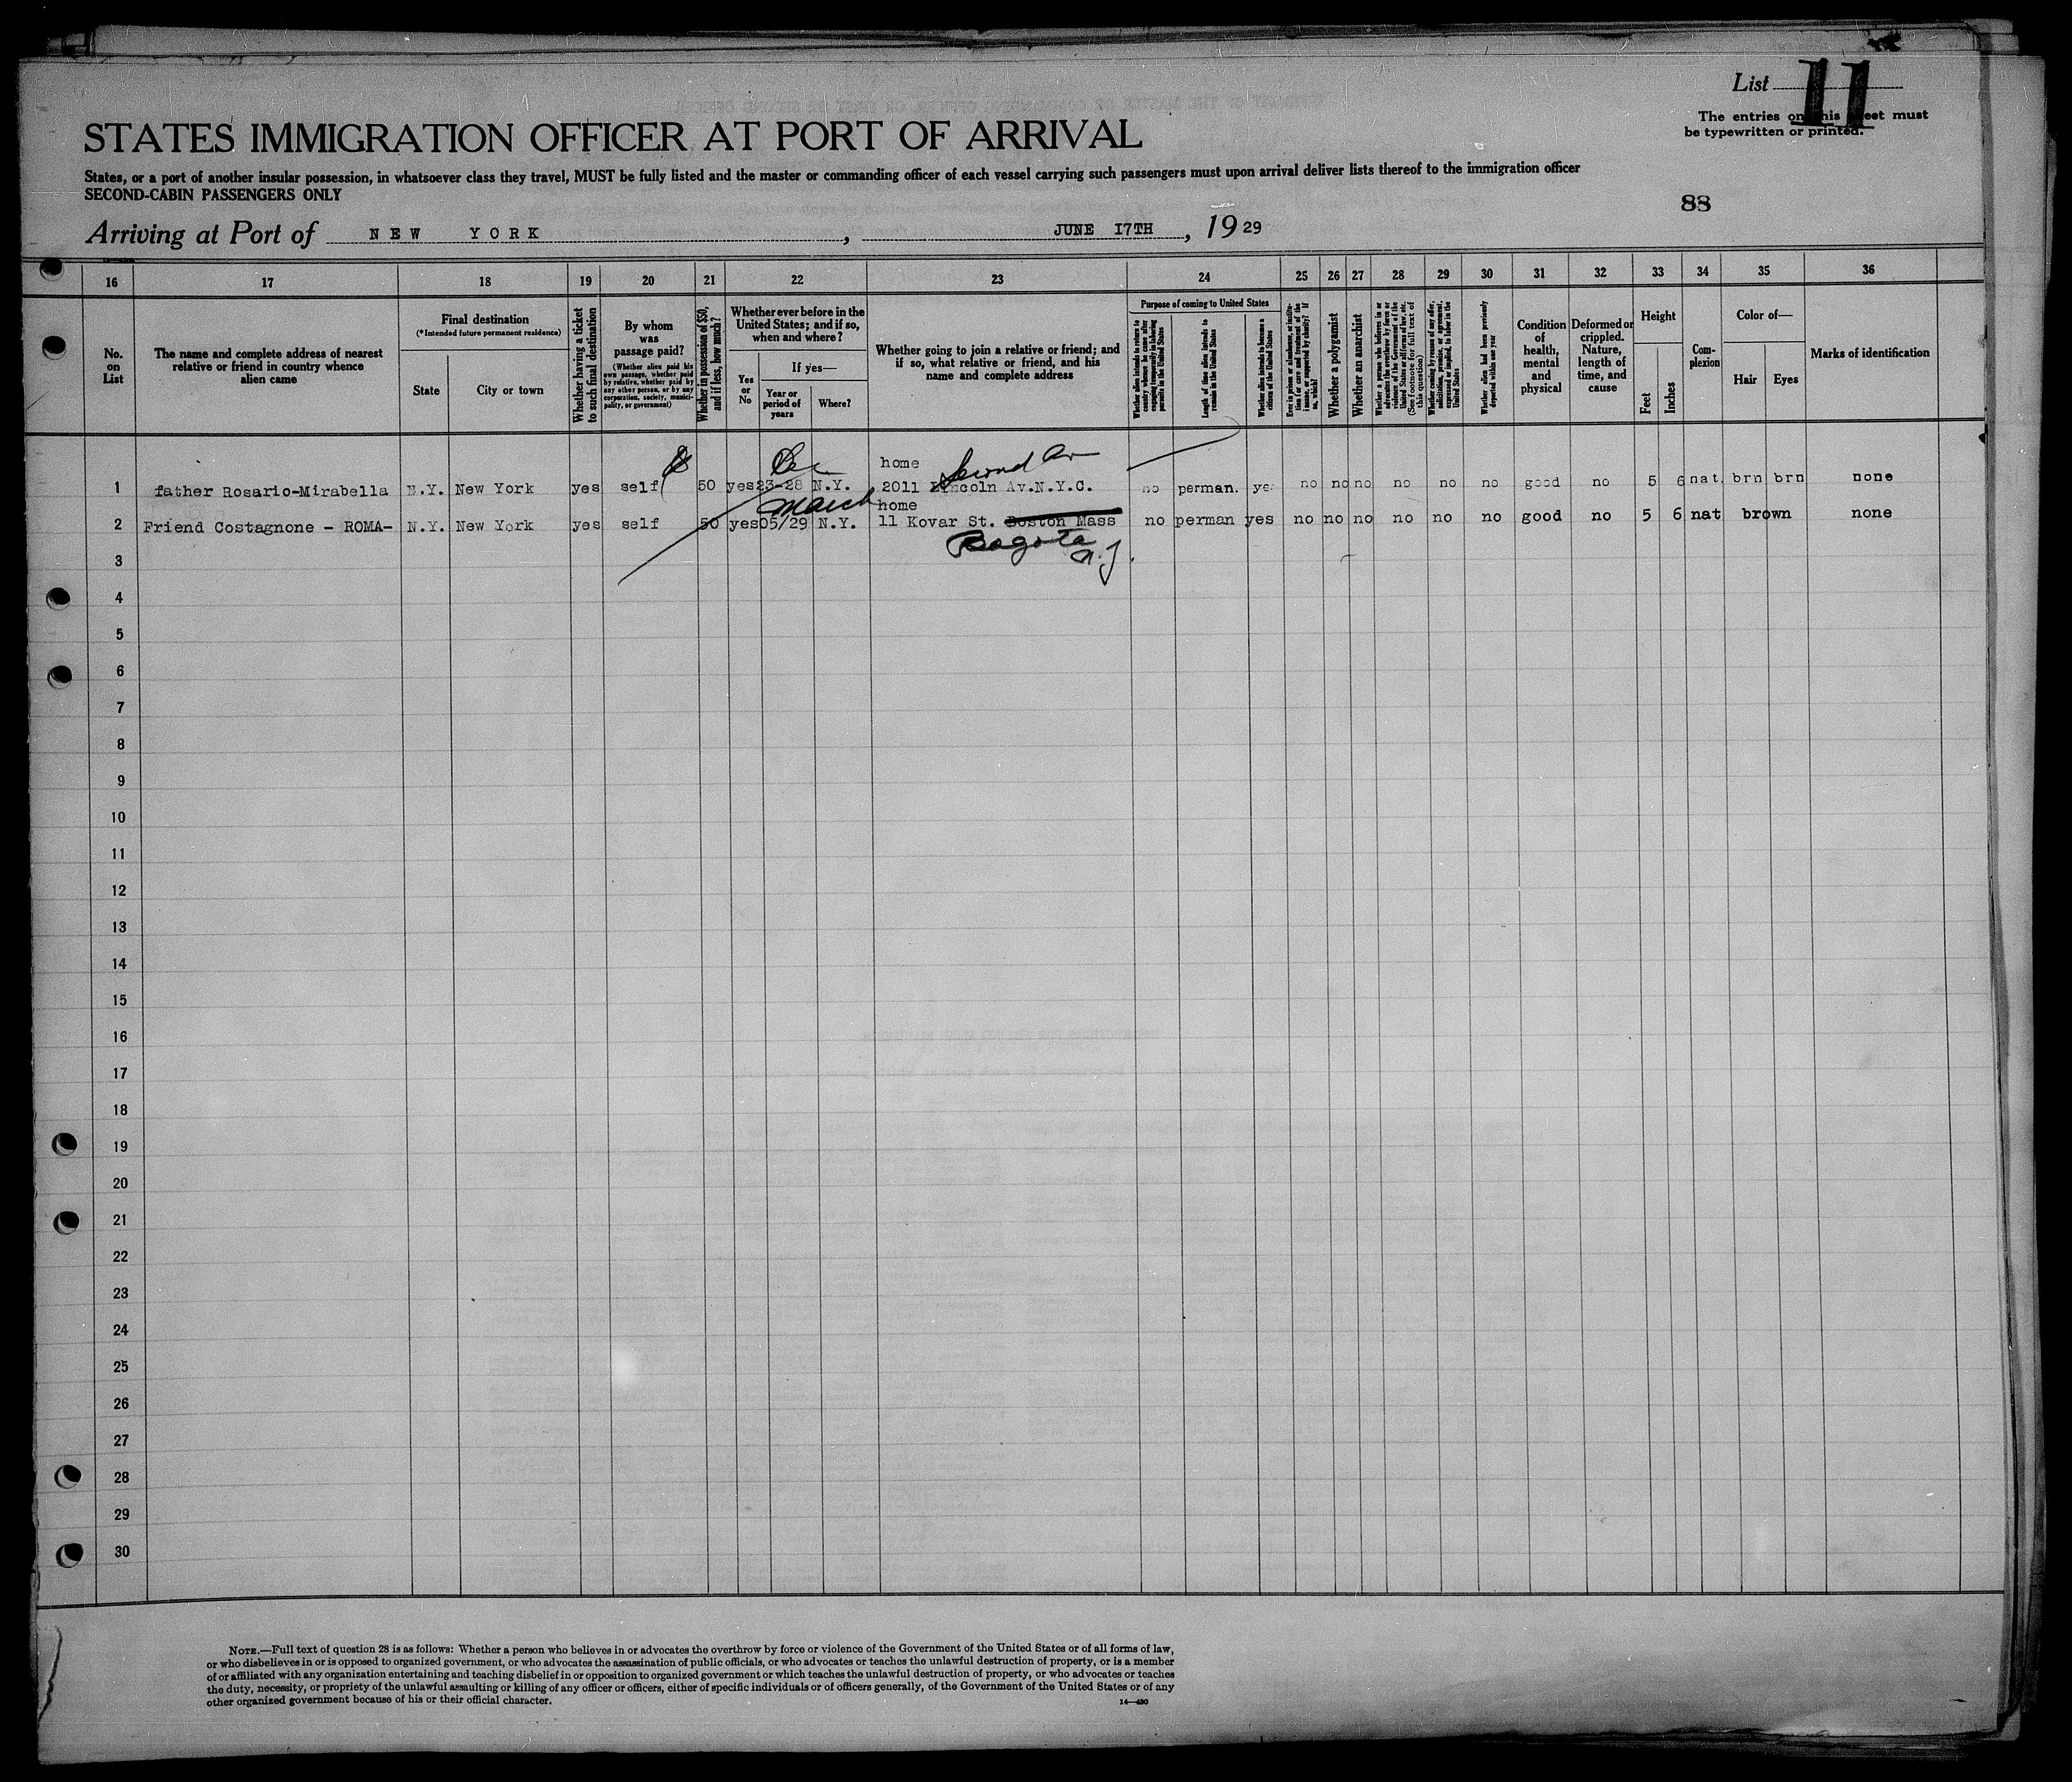 List 11
The entries on this sheet must
be typewritten or printed.
STATES IMMIGRATION OFFICER AT PORT OF ARRIVAL
States, or a port of another insular possession, in whatsoever class they travel, MUST be fully listed and the master or commanding officer of each vessel carrying such passengers must upon arrival deliver lists thereof to the immigration officer
SECOND-CABIN PASSENGERS ONLY
88
Arriving at Port of NEW YORK, JUNE 17TH, 1929
16 17 18 19 20 21 22 23 24 25 26 27 28 29 30 31 32 33 34 35 36
No. on List
The name and complete address of nearest relative or friend in country whence alien came
Final destination
(*Intended future permanent residence)
State
City or town
Whether having a ticket to such final destination
By whom was passage paid?
(Whether alien paid his own passage, whether paid by relative, whether paid by any other person, or by any corporation, society, municipality, or government)
Whether in possession of $50, and if less, how much?
Whether ever before in the United States; and if so, when and where?
Yes or No
If yes—
Year or period of years
Where?
Whether going to join a relative or friend; and if so, what relative or friend, and his name and complete address
Purpose of coming to United States
Whether alien intends to return to country whence he came after engaging temporarily in laboring pursuits in the United States
Length of time alien intends to remain in the United States
Whether alien intends to become a citizen of the United States
Ever in prison or almshouse, or institution for care and treatment of the insane, or supported by charity? If so, which?
Whether a polygamist
Whether an anarchist
Whether a person who believes in or advocates the overthrow by force or violence of the Government of the United States or all forms of law, etc. (See footnote for full text of this question)
Whether coming by reason of any offer, solicitation, promise, or agreement, expressed or implied, to labor in the United States
Whether alien had been previously deported within one year
Condition of health, mental and physical
Deformed or crippled. Nature, length of time, and cause
Height
Feet
Inches
Complexion
Color of—
Hair
Eyes
Marks of identification
Dec
home Second Av
1 father Rosario-Mirabella N.Y. New York yes self 50 yes 23-28 N.Y. 2011 Lincoln Av.N.Y.C. no perman. yes no no no no no no good no 5 6 nat. brn brn none
March home
2 Friend Costagnone - ROMA- N.Y. New York yes self 50 yes 05/29 N.Y. 11 Kovar St. Boston Mass no perman yes no no no no no no good no 5 6 nat brown none
Bogota
N.J.
3
4
5
6
7
8
9
10
11
12
13
14
15
16
17
18
19
20
21
22
23
24
25
26
27
28
29
30
NOTE.—Full text of question 28 is as follows: Whether a person who believes in or advocates the overthrow by force or violence of the Government of the United States or of all forms of law,
or who disbelieves in or is opposed to organized government, or who advocates the assassination of public officials, or who advocates or teaches the unlawful destruction of property, or is a member
of or affiliated with any organization entertaining and teaching disbelief in or opposition to organized government or which teaches the unlawful destruction of property, or who advocates or teaches
the duty, necessity, or propriety of the unlawful assaulting or killing of any officer or officers, either of specific individuals or of officers generally, of the Government of the United States or of any
other organized government because of his or their official character.
14—430